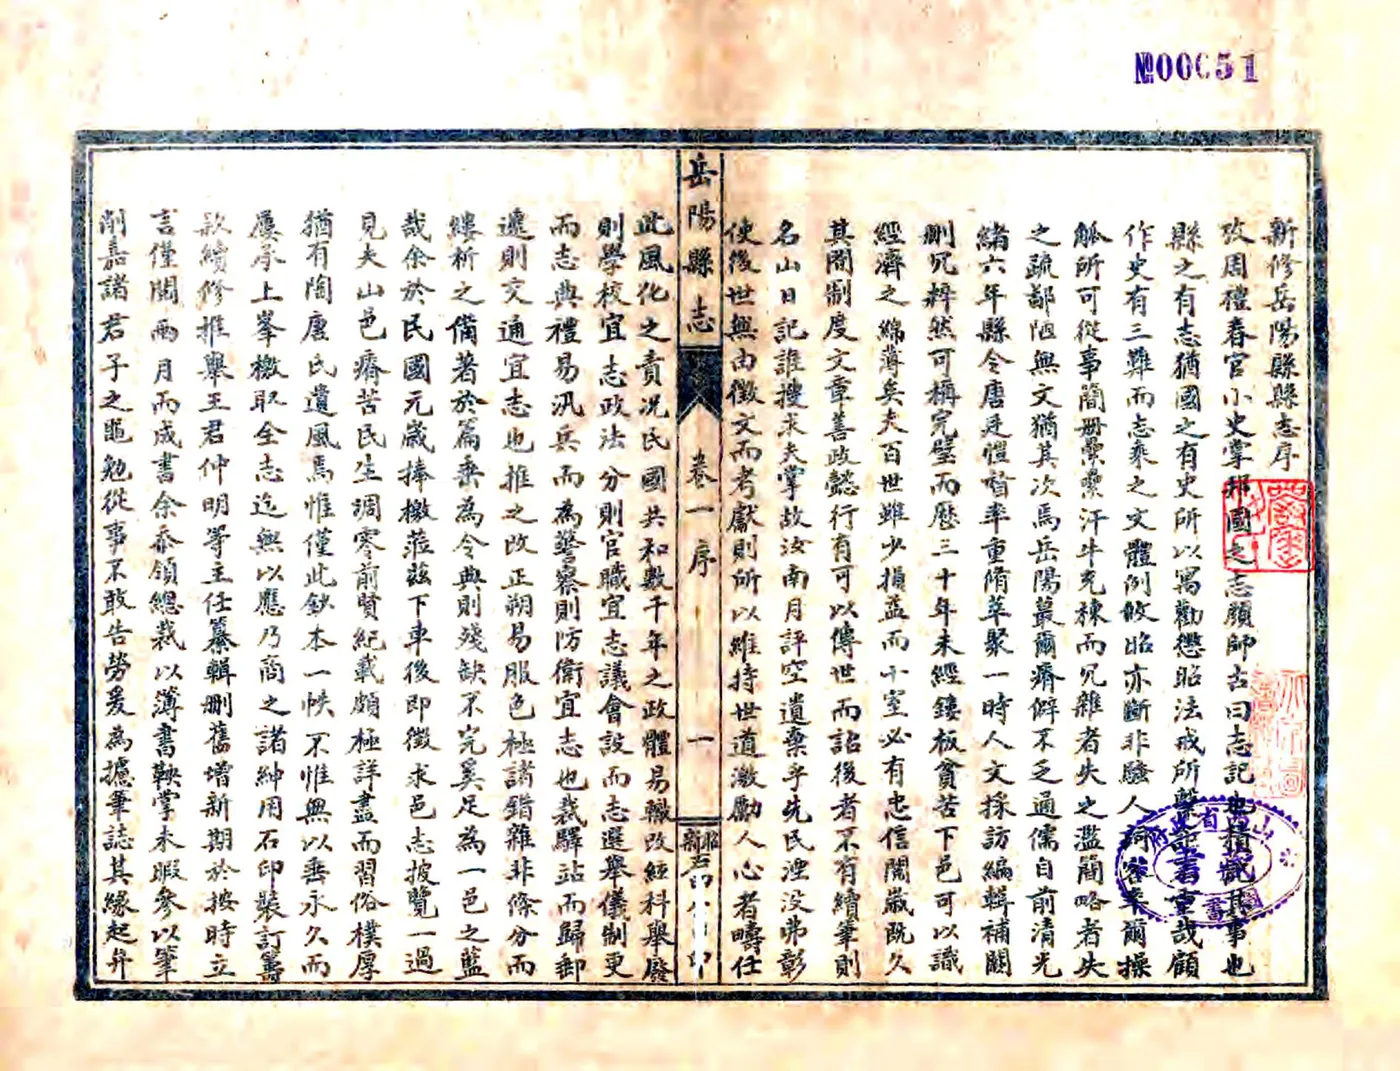 №00051
新修岳陽縣縣志序
攷周禮春官小史掌邦國之志顏師古曰志記也積記其事也
縣之有志猶國之有史所以寓勸懲昭法戒所繫詎不重哉顧
作史有三難而志乘之文體例攸昭亦斷非騷人詞客率爾操
觚所可從事簡冊縈縈汗牛充棟而冗雜者失之濫簡略者失
之疏鄙陋無文猶其次焉岳陽蕞爾瘠僻不乏通儒自前清光
緒六年縣令唐廷愷首率重脩萃聚一時人文採訪編輯補闕
刪冗粹然可稱完璧而歷三十年未經鏤板貧苦下邑可以識
經濟之綿薄矣夫百世雖少損益而十室必有忠信闕畧既久
其間制度文章善政懿行有可以傳世而詔後者不有續筆則
名山日記誰搜求夫掌故汝南月評空遺棄乎先民湮没弗彰
使後世無由徵文而考獻則所以維持世道激勵人心者疇任
岳陽縣志
卷一
序
一
此風化之責况民國共和數千年之政體易轍改絃科舉廢
則學校宜志政法分則官職宜志議會設而志選舉儀制更
而志典禮易汛兵而為警察則防衛宜志也裁驛站而歸郵
遞則交通宜志也推之改正朔易服色極諸錯雜非條分而
縷析之備著於篇乘為令典則殘缺不完奚足為一邑之藍
哉余於民國元歲捧檄蒞茲下車後即徵求邑志披覽一過
見夫山邑瘠苦民生凋零前賢紀載頗極詳盡而習俗樸厚
猶有陶唐氏遺風焉惟僅此鈔本一帙不惟無以垂永久而
屢承上峯檄取全志迄無以應乃商之諸紳用石印裝訂籌
款續修推舉王君仲明等主任纂輯刪舊增新期於按時立
言僅閱兩月而成書余忝領總裁以簿書鞅掌未暇參以筆
削嘉諸君子之黽勉從事不敢告勞爰為攄筆誌其緣起弁